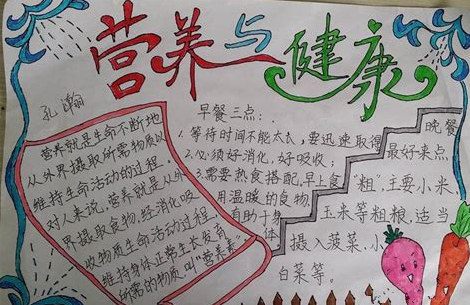 营养与健康
孔瀚
营养就是生命不断地
从外界摄取所需物质以
维持生命活动的过程。
对人来说,营养就是从外
界摄取食物,经消化吸
收物质生命活动过程。
维持身体正常生长发育
所需的物质叫“营养素”
早餐三点:
1.等待时间不能太长,要迅速取得
2.必须好消化,好吸收;
3.需要热食搭配,早上食
用温暖的食物,
有助于身
体
晚餐
最好来点
“粗”,主要小米、
玉米等粗粮,适当
摄入菠菜、小
白菜等。